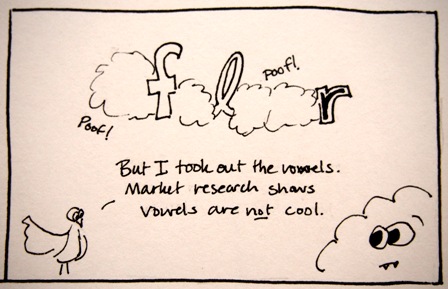 poof!
f l r
Poof!
But I took out the vowels.
Market research shows
vowels are not cool.